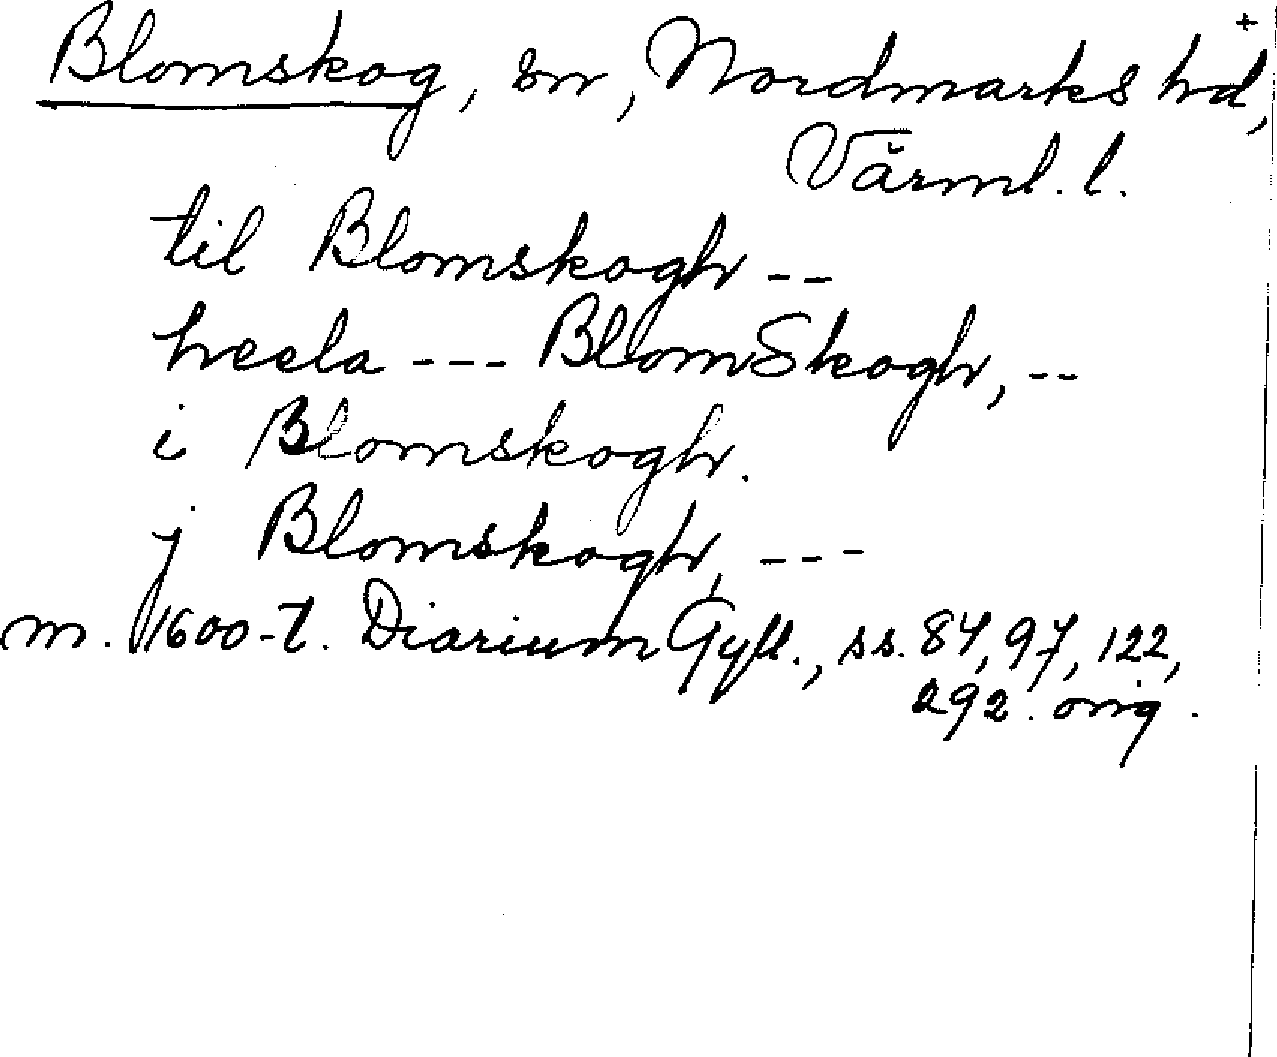 +
Blomskog, sn, Nordmarks hd,
Värml. l.
til Blomskogh --
heela --- BlomSkogh, --
i Blomskogh.
j Blomskogh, ---
m. 1600-t. Diarium Gyll., ss. 87, 97, 122,
292. orig.